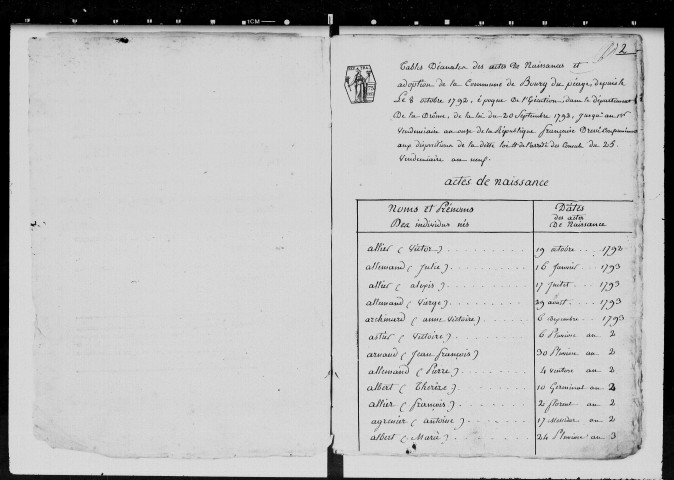 2
Tables Décanales des actes De Naissances et
adoption de la Commune de Bourg du péage, depuis le
Le 8 octobre 1792, époque De l'Exécution, dans le département
De la Drôme, de la loi du 20 Septembre 1792, jusqu'au 1er
Vendemiaire an onze de la République française
aux dispositions de la ditte loi et de l'arrêté des Consuls du 25
Vendemiaire an neuf.
actes de naissance
Noms et Prénoms
Des individus nés
Dâtes
des actes
De Naissance
allier (Victor) 19 octobre 1792
allemand (Julie) 16 Janvier 1793
allier (alexis) 17 Juillet 1793
allemand (Vierge) 29 août 1793
archinard (anne Victoire) 6 Decembre 1793
astier (Victoire) 6 Pluviose an 2
arnaud (Jean françois) 30 Pluviose an 2
allemand (Pierre) 4 ventose an 2
albert (Thérèze) 10 Germinal an 2
allier (françois) 2 floreal an 2
agrenier (antoine) 17 Messidor an 2
albert (Marie) 24 Pluviose an 3
1CM